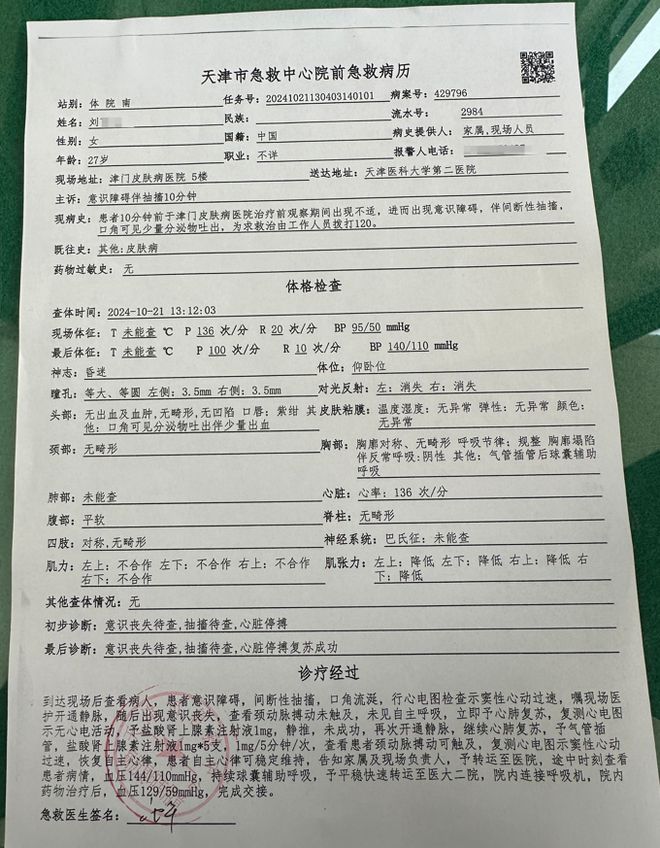 天津市急救中心院前急救病历
站别：体 院 南 任务号：20241021130403140101 病案号：429796
姓名：刘 民族： 流水号：2984
性别：女 国籍：中国 病史提供人：家属,现场人员
年龄：27岁 职业：不详 报警人电话：
现场地址：津门皮肤病医院 5楼 送达地址：天津医科大学第二医院
主诉：意识障碍伴抽搐10分钟
现病史：患者10分钟前于津门皮肤病医院治疗前观察期间出现不适，进而出现意识障碍，伴间断性抽搐，
口角可见少量分泌物吐出，为求救治由工作人员拨打120。
既往史：其他:皮肤病
药物过敏史：无
体格检查
查体时间：2024-10-21 13:12:03
现场体征：T 未能查 ℃ P 136 次/分 R 20 次/分 BP 95/50 mmHg
最后体征：T 未能查 ℃ P 100 次/分 R 10 次/分 BP 140/110 mmHg
神志：昏迷 体位：仰卧位
瞳孔：等大、等圆 左侧：3.5mm 右侧：3.5mm 对光反射：左：消失 右：消失
头部：无出血及血肿,无畸形,无凹陷 口唇：紫绀 其他：口角可见分泌物吐出伴少量出血 皮肤粘膜：温度湿度：无异常 弹性：无异常 颜色：无异常
颈部：无畸形 胸部：胸廓对称、无畸形 呼吸节律：规整 胸廓塌陷
伴反常呼吸:阴性 其他：气管插管后球囊辅助
呼吸
肺部：未能查 心脏：心率：136 次/分
腹部：平软 脊柱：无畸形
四肢：对称,无畸形 神经系统：巴氏征：未能查
肌力：左上：不合作 左下：不合作 右上：不合作 右下：不合作 肌张力：左上：降低 左下：降低 右上：降低 右下：降低
其他查体情况：无
初步诊断：意识丧失待查,抽搐待查,心脏停搏
最后诊断：意识丧失待查,抽搐待查,心脏停搏复苏成功
诊疗经过
到达现场后查看病人，患者意识障碍，间断性抽搐，口角流涎，行心电图检查示窦性心动过速，嘱现场医
护开通静脉，随后出现意识丧失，查看颈动脉搏动未触及，未见自主呼吸，立即予心肺复苏，复测心电图
示无心电活动，予盐酸肾上腺素注射液1mg，静推，未成功，再次开通静脉，继续心肺复苏，予气管插
管，盐酸肾上腺素注射液1mg*5支，1mg/5分钟/次，查看患者颈动脉搏动可触及，复测心电图示窦性心动
过速，恢复自主心律，患者自主心律可稳定维持，告知家属及现场负责人，予转运至医院，途中时刻查看
患者病情，血压144/110mmHg，持续球囊辅助呼吸，予平稳快速转运至医大二院，院内连接呼吸机，院内
药物治疗后，血压129/59mmHg，完成交接。
急救医生签名：